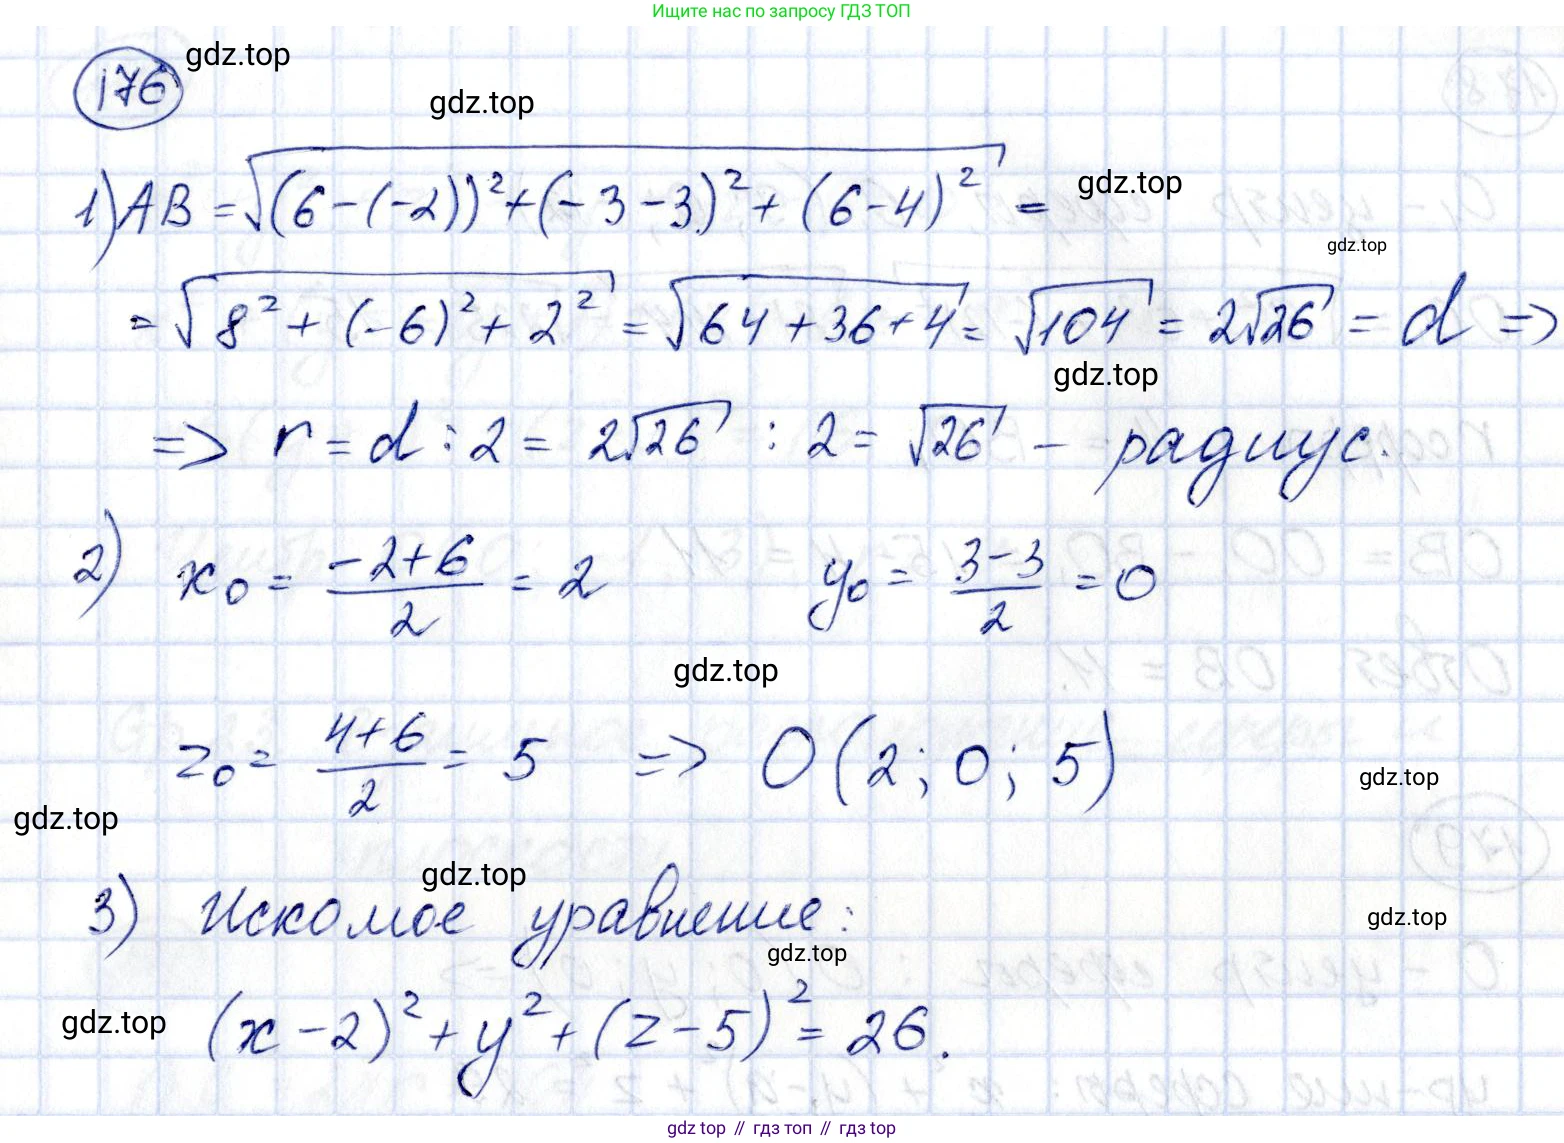 Ищите нас по запросу ГДЗ ТОП
176 gdz.top
gdz.top
1) AB = √((6-(-2))²+(-3-3)²+(6-4)²) = gdz.top
gdz.top
= √(8²+(-6)²+2²) = √(64+36+4) = √104 = 2√26 = d =>
gdz.top
=> r = d : 2 = 2√26 : 2 = √26 - радиус.
2) x₀ = (-2+6)/2 = 2 y₀ = (3-3)/2 = 0
gdz.top
z₀ = (4+6)/2 = 5 => O(2; 0; 5)
gdz.top
gdz.top
gdz.top
3) Искомое уравнение:
gdz.top
gdz.top
gdz.top
(x-2)²+y²+(z-5)² = 26.
gdz top // гдз топ // гдз top